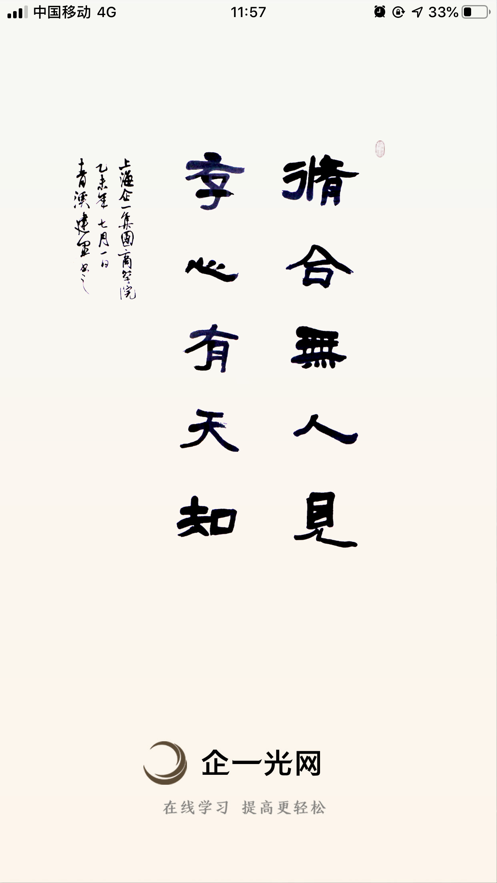 中国移动 4G 11:57 33%
脩合無人見
存心有天知
上海企一集團商学院
乙未年七月一日
青溪建軍
企一光网
在线学习 提高更轻松